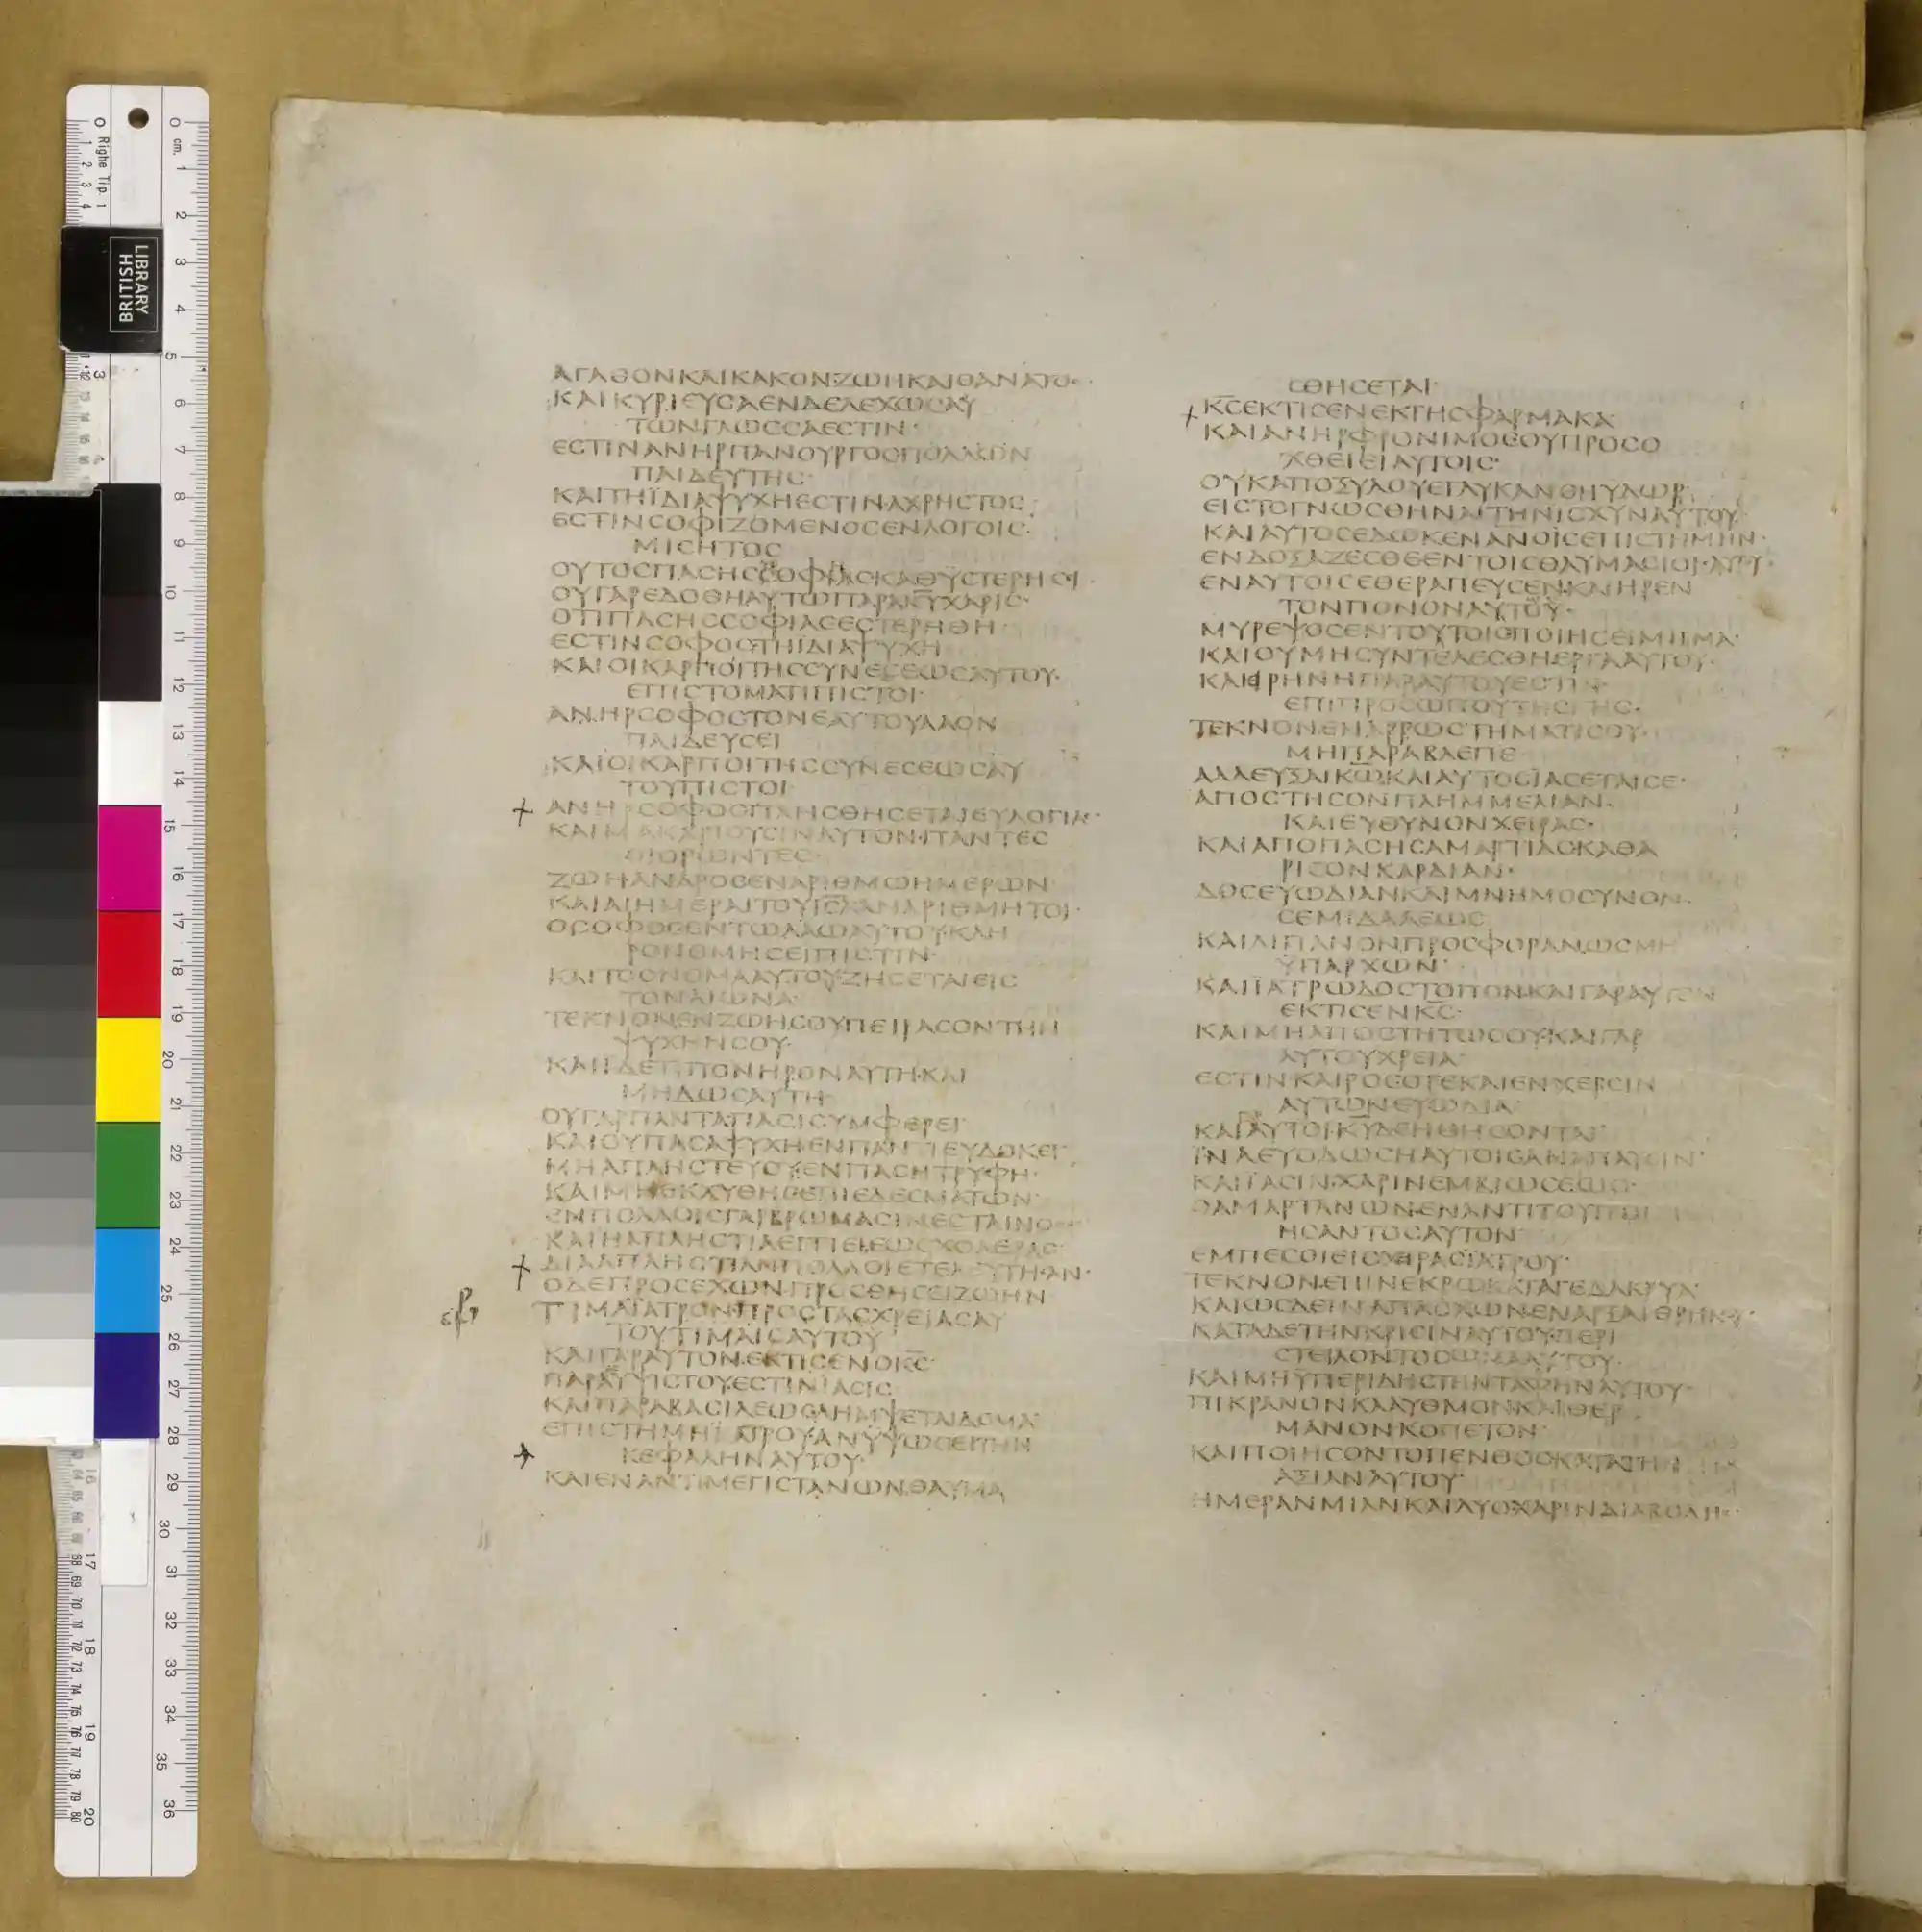 ΑΓΑΘΟΝΚΑΙΚΑΚΟΝ·ΖΩΗΚΑΙΘΑΝΑΤΟϹ·
ΚΑΙΚΥΡΙΕΥϹΑΕΝΔΕΛΕΧΩϹΑΥ
ΤΩΝΓΛΩϹϹΑΕϹΤΙΝ·
ΕϹΤΙΝΑΝΗΡΠΑΝΟΥΡΓΟϹΠΟΛΛΩΝ
ΠΑΙΔΕΥΤΗϹ·
ΚΑΙΤΗΪΔΙΑΨΥΧΗΕϹΤΙΝΑΧΡΗϹΤΟϹ·
ΕϹΤΙΝϹΟΦΙΖΟΜΕΝΟϹΕΝΛΟΓΟΙϹ·
ΜΙϹΗΤΟϹ
ΟΥΤΟϹΠΑϹΗϹ
ΟΥΓΑΡΕΔΟΘΗΑΥΤΩΠΑΡΑΚΥΧΑΡΙϹ·
ΟΤΙΠΑϹΗϹϹΟΦΙΑϹΕϹΤΕΡΗΘΗ·
ΕϹΤΙΝϹΟΦΟϹΤΗΙΔΙΑΨΥΧΗ
ΚΑΙΟΙΚΑΡΠΟΙΤΗϹϹΥΝΕϹΕΩϹΑΥΤΟΥ·
ΕΠΙϹΤΟΜΑΤΙΠΙϹΤΟΙ·
ΑΝΗΡϹΟΦΟϹΤΟΝΕΑΥΤΟΥΛΑΟΝ
ΠΑΙΔΕΥϹΕΙ
ΚΑΙΟΙΚΑΡΠΟΙΤΗϹϹΥΝΕϹΕΩϹΑΥ
ΤΟΥΠΙϹΤΟΙ·
ΑΝΗΡϹΟΦΟϹΠΛΗϹΘΗϹΕΤΑΙΕΥΛΟΓΙΑϹ·
ΚΑΙΜΑΚΑΡΙΟΥϹΙΝΑΥΤΟΝ·ΠΑΝΤΕϹ
ΟΙΟΡΩΝΤΕϹ·
ΖΩΗΑΝΔΡΟϹΕΝΑΡΙΘΜΩΗΜΕΡΩΝ
ΚΑΙΑΙΗΜΕΡΑΙΤΟΥΙϹΛΑΝΑΡΙΘΜΗΤΟΙ·
ΟϹΟΦΟϹΕΝΤΩΛΑΩΑΥΤΟΥΚΛΗ
ΡΟΝΟΜΗϹΕΙΠΙϹΤΙΝ·
ΚΑΙΤΟΟΝΟΜΑΑΥΤΟΥΖΗϹΕΤΑΙΕΙϹ
ΤΟΝΑΙΩΝΑ·
ΤΕΚΝΟΝΕΝΖΩΗϹΟΥΠΕΙΡΑϹΟΝΤΗΝ
ΨΥΧΗΝϹΟΥ·
ΚΑΙΙΔΕΤΙΠΟΝΗΡΟΝΑΥΤΗ·ΚΑΙ
ΜΗΔΩϹΑΥΤΗ·
ΟΥΓΑΡΠΑΝΤΑΠΑϹΙϹΥΜΦΕΡΕΙ·
ΚΑΙΟΥΠΑϹΑΨΥΧΗΕΝΠΑΝΤΙΕΥΔΟΚΕΙ·
ΜΗΑΠΛΗϹΤΕΥΟΥΕΝΠΑϹΗΤΡΥΦΗ·
ΚΑΙΜΗΕΚΧΥΘΗϹΕΠΙΕΔΕϹΜΑΤΩΝ·
ΕΝΠΟΛΛΟΙϹΓΑΡΒΡΩΜΑϹΙΝΕϹΤΑΙΝΟϹΟϹ
ΚΑΙΗΑΠΛΗϹΤΙΑΕΓΓΙΕΙΕΩϹΧΟΛΕΡΑϹ·
ΔΙΑΑΠΛΗϹΤΙΑΝΠΟΛΛΟΙΕΤΕΛΕΥΤΗϹΑΝ·
ΟΔΕΠΡΟϹΕΧΩΝ·ΠΡΟϹΘΗϹΕΙΖΩΗΝ·
ΤΙΜΑΪΑΤΡΟΝΠΡΟϹΤΑϹΧΡΕΙΑϹΑΥ
ΤΟΥΤΙΜΑΙϹΑΥΤΟΥ
ΚΑΙΓΑΡΑΥΤΟΝ·ΕΚΤΙϹΕΝΟΚϹ·
ΠΑΡΑΥΨΙϹΤΟΥΕϹΤΙΝΙΑϹΙϹ
ΚΑΙΠΑΡΑΒΑϹΙΛΕΩϹΛΗΜΨΕΤΑΙΔΟΜΑ·
ΕΠΙϹΤΗΜΗΪΑΤΡΟΥΑΝΥΨΩϹΕΙΤΗΝ
ΚΕΦΑΛΗΝΑΥΤΟΥ·
ΚΑΙΕΝΑΝΤΙΜΕΓΙϹΤΑΝΩΝ·ΘΑΥΜΑ
ϹΘΗϹΕΤΑΙ·
ΚϹΕΚΤΙϹΕΝΕΚΓΗϹΦΑΡΜΑΚΑ
ΚΑΙΑΝΗΡΦΡΟΝΙΜΟϹΟΥΠΡΟϹΟ
ΧΘΕΙΕΙΑΥΤΟΙϹ·
ΟΥΚΑΠΟΞΥΛΟΥΕΓΛΥΚΑΝΘΗΥΔΩΡ·
ΕΙϹΤΟΓΝΩϹΘΗΝΑΙΤΗΝΙϹΧΥΝΑΥΤΟΥ·
ΚΑΙΑΥΤΟϹΕΔΩΚΕΝΑΝΟΙϹΕΠΙϹΤΗΜΗΝ·
ΕΝΔΟΞΑΖΕϹΘΕΕΝΤΟΙϹΘΑΥΜΑϹΙΟΙϹΑΥΤΟΥ·
ΕΝΑΥΤΟΙϹΕΘΕΡΑΠΕΥϹΕΝ·ΚΑΙΗΡΕΝ
ΤΟΝΠΟΝΟΝΑΥΤΟΥ·
ΜΥΡΕΨΟϹΕΝΤΟΥΤΟΙϹΠΟΙΗϹΕΙΜΙΓΜΑ·
ΚΑΙΟΥΜΗϹΥΝΤΕΛΕϹΘΗΕΡΓΑΑΥΤΟΥ·
ΚΑΙΙΡΗΝΗΠΑΡΑΥΤΟΥΕϹΤΙΝ·
ΕΠΙΠΡΟϹΩΠΟΥΤΗϹΓΗϹ·
ΤΕΚΝΟΝ·ΕΝΑΡΡΩϹΤΗΜΑΤΙϹΟΥ·
ΜΗΠΑΡΑΒΛΕΠΕ·
ΑΛΛΕΥΞΑΙΚΩ·ΚΑΙΑΥΤΟϹΪΑϹΕΤΑΙϹΕ·
ΑΠΟϹΤΗϹΟΝΠΛΗΜΜΕΛΙΑΝ·
ΚΑΙΕΥΘΥΝΟΝΧΕΙΡΑϹ·
ΚΑΙΑΠΟΠΑϹΗϹΑΜΑΡΤΙΑϹΚΑΘΑ
ΡΙϹΟΝΚΑΡΔΙΑΝ·
ΔΟϹΕΥΩΔΙΑΝΚΑΙΜΝΗΜΟϹΥΝΟΝ·
ϹΕΜΙΔΑΛΕΩϹ
ΚΑΙΛΙΠΑΝΟΝΠΡΟϹΦΟΡΑΝ·ΩϹΜΗ
ΫΠΑΡΧΩΝ·
ΚΑΙΪΑΤΡΩΔΟϹΤΟΠΟΝ·ΚΑΙΓΑΡΑΥΤΟΝ
ΕΚΤΙϹΕΝΚϹ·
ΚΑΙΜΗΑΠΟϹΤΗΤΩϹΟΥ·ΚΑΙΓΑΡ
ΑΥΤΟΥΧΡΕΙΑ·
ΕϹΤΙΝΚΑΙΡΟϹΟΤΕΚΑΙΕΝΧΕΡϹΙΝ
ΑΥΤΩΝΕΥΩΔΙΑ·
ΚΑΙΓΑΥΤΟΙ·ΚΥΔΕΗΘΗϹΟΝΤΑΙ·
ΪΝΑΕΥΟΔΩϹΗΑΥΤΟΙϹΑΝΑΠΑΥϹΙΝ·
ΚΑΙΪΑϹΙΝ·ΧΑΡΙΝΕΜΒΙΩϹΕΩϹ·
ΟΑΜΑΡΤΑΝΩΝ·ΕΝΑΝΤΙΤΟΥΠΟΙ
ΗϹΑΝΤΟϹΑΥΤΟΝ·
ΕΜΠΕϹΟΙΕΙϹΧΙΡΑϹΪΑΤΡΟΥ·
ΤΕΚΝΟΝ·ΕΠΙΝΕΚΡΩΚΑΤΑΓΕΔΑΚΡΥΑ·
ΚΑΙΩϹΔΕΙΝΑΠΑϹΧΩΝ·ΕΝΑΡΞΑΙΘΡΗΝΟΥ·
ΚΑΤΑΔΕΤΗΝΚΡΙϹΙΝΑΥΤΟΥ·ΠΕΡΙ
ϹΤΕΙΛΟΝΤΟϹΩΜΑΑΥΤΟΥ·
ΚΑΙΜΗΫΠΕΡΙΔΗϹΤΗΝΤΑΦΗΝΑΥΤΟΥ·
ΠΙΚΡΑΝΟΝΚΛΑΥΘΜΟΝ·ΚΑΙΘΕΡ
ΜΑΝΟΝΚΟΠΕΤΟΝ·
ΚΑΙΠΟΙΗϹΟΝΤΟΠΕΝΘΟϹΚΑΤΑΤΗΝ
ΑΞΙΑΝΑΥΤΟΥ·
ΗΜΕΡΑΝΜΙΑΝΚΑΙΔΥΟ·ΧΑΡΙΝΔΙΑΒΟΛΗϹ·
BRITISH
LIBRARY